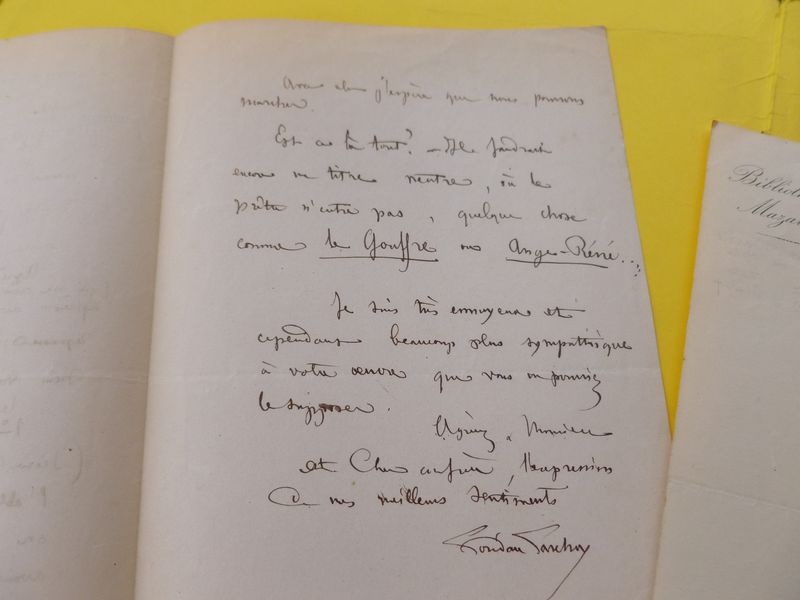 Avec cela j'espère que nous pouvons
marcher.
Est ce là tout? – Il faudrait
encore un titre neutre, où le
prêtre n'entre pas, quelque chose
comme le Gouffre ou Ange-Réné...
Je suis très ennuyeux et
cependant beaucoup plus sympathique
à votre œuvre que vous ne pourriez
le supposer.
Agréez, Monsieur
et Cher confrère, l'expression
de mes meilleurs sentiments
Biblio
Maza